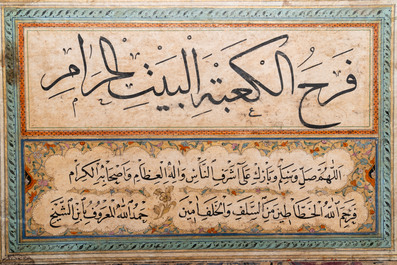 فرح الكعبة البيت الحرام
اللهم صل وسلم وبارك على أشرف الناس وآله العظام وأصحابه الكرام
فرحم الله الخطاطين من السلف والخلف أمين حمد الله المعروف بابن الشيخ